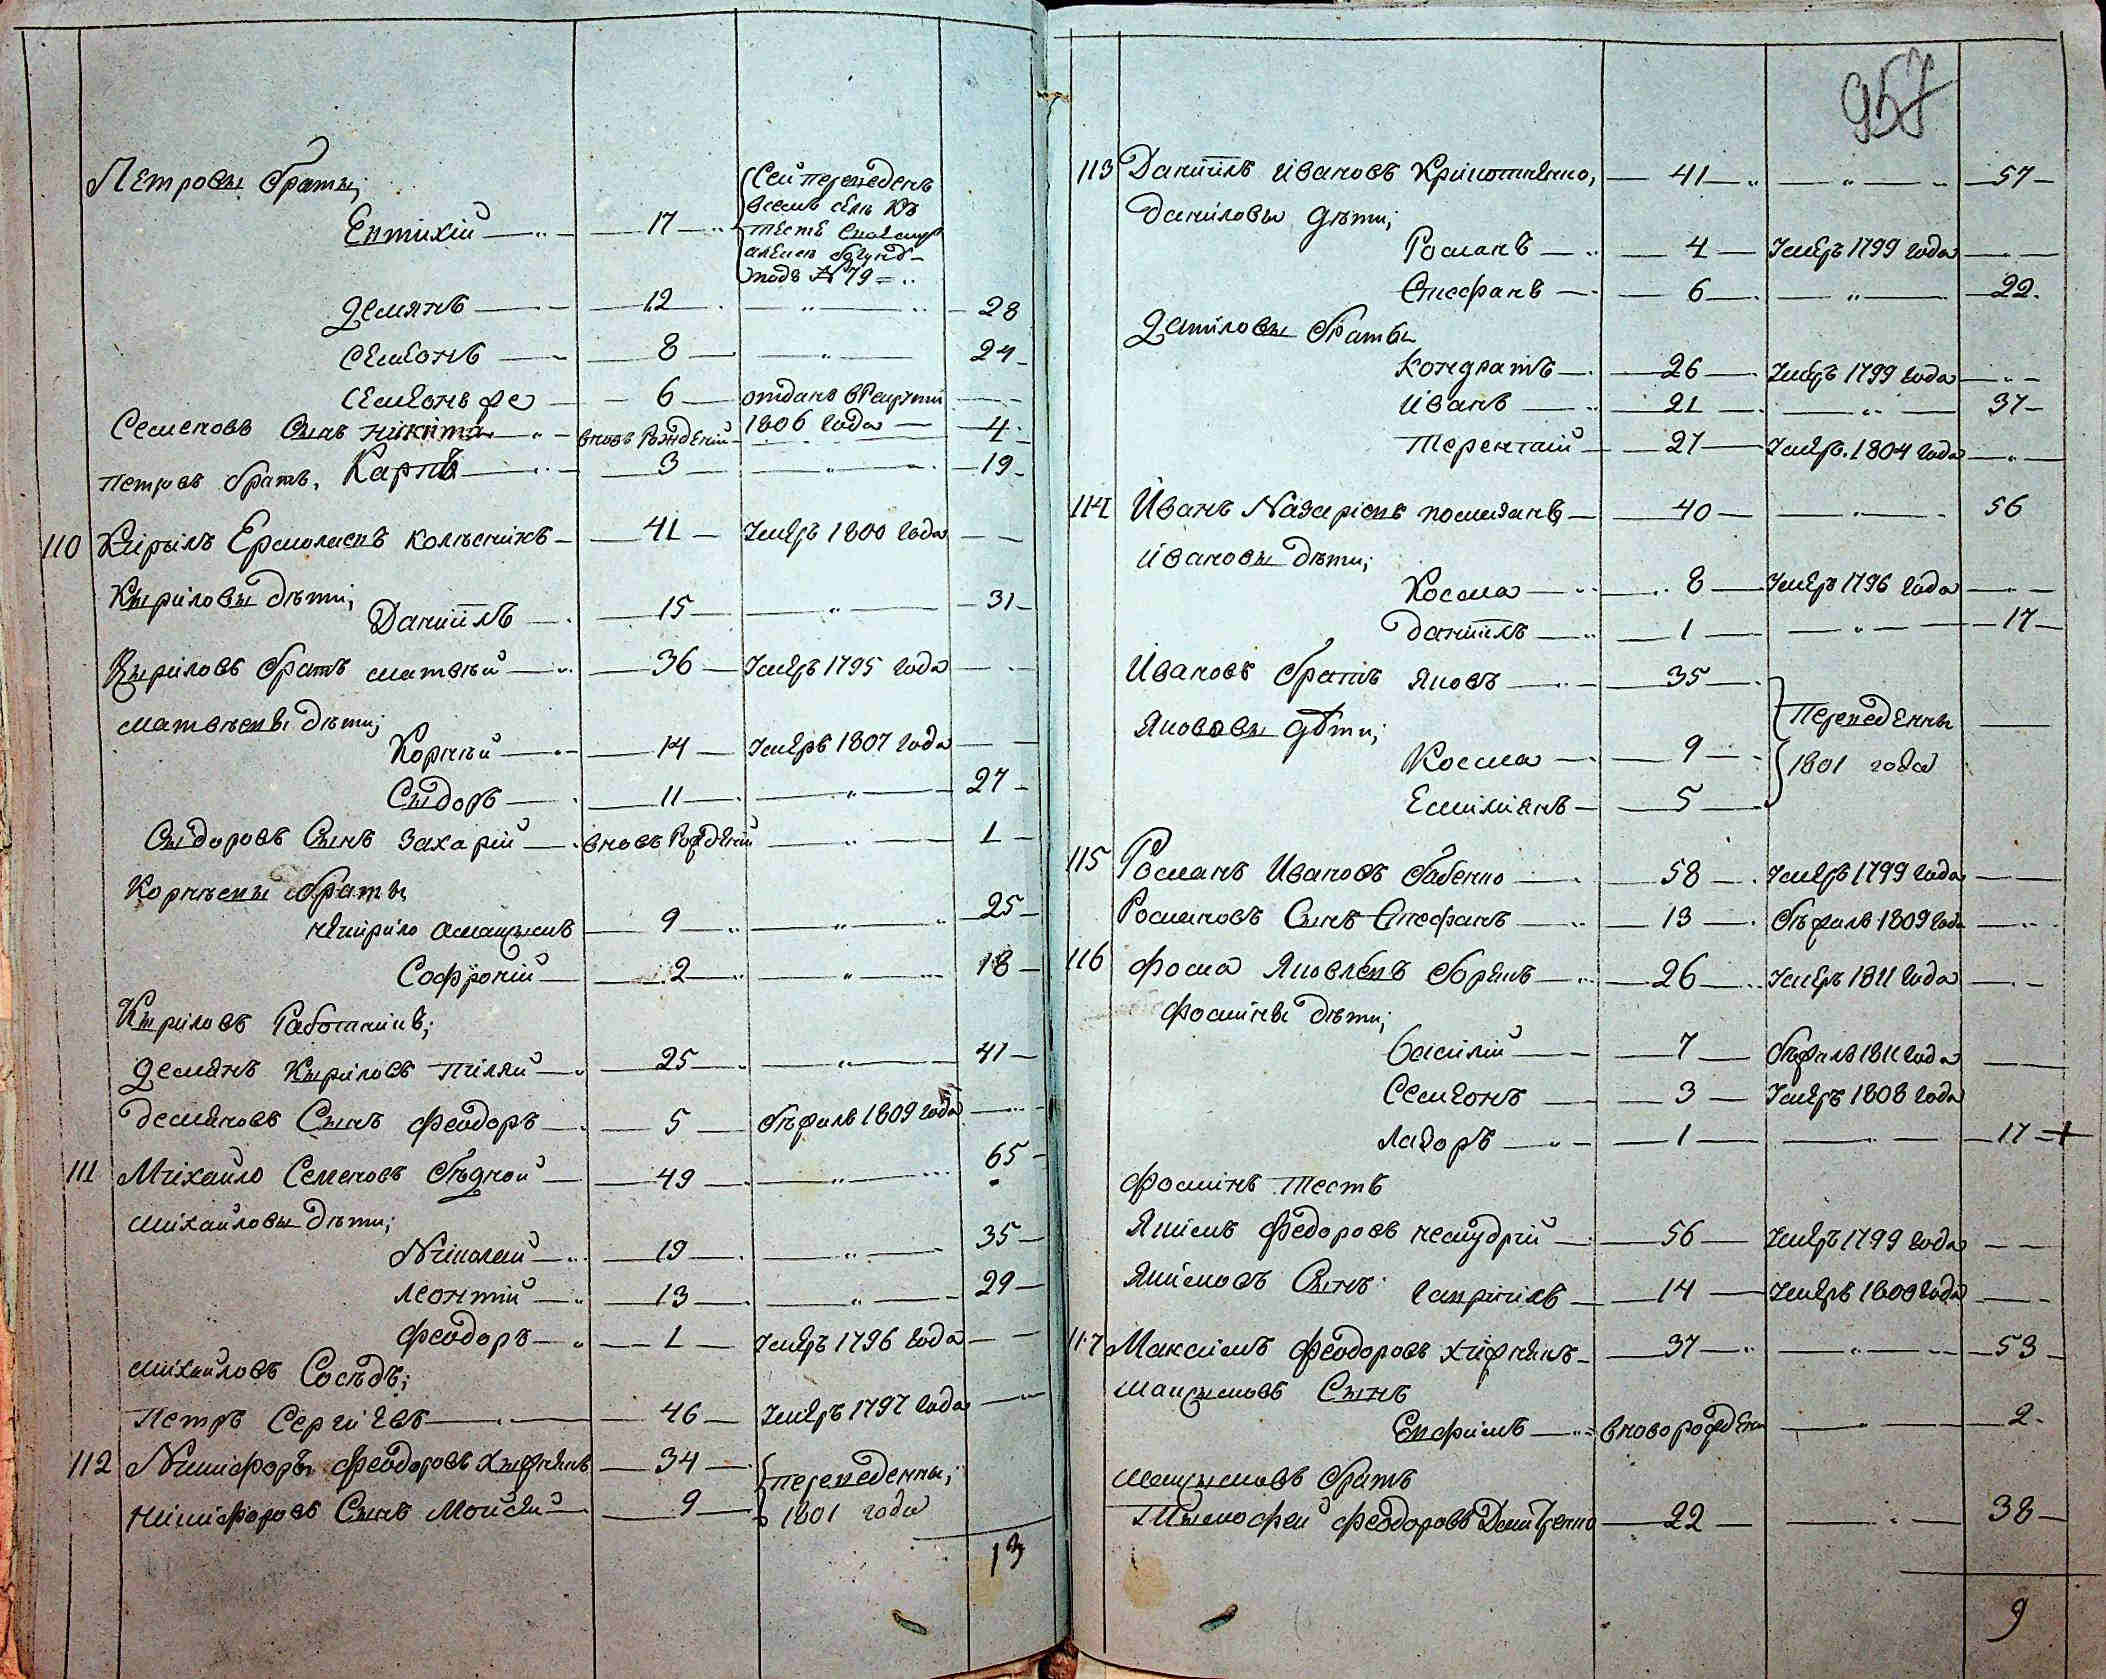 Петровы браты;
Евтихій — 17 — Сей переведенъ
в семъ селѣ къ
тестѣ
подъ № 79
Демянъ — 12 — " — 28
Семіонъ — 8 — " — 24
Семіонъ же — 6 — отданъ в рекруты
1806 года
Семеновъ Сынъ Никита — вновь рожденій — 4
Петровъ братъ, Карпъ — 3 — " — 19
110 Кирылъ Ермолаевъ Колѣсникъ — 41 — Умеръ 1800 года
Кыриловы дѣти;
Даніилъ — 15 — " — 31
Кыриловъ братъ Матвѣй — 36 — Умеръ 1795 года
Матвѣевы дѣти;
Корнѣй — 14 — Умеръ 1807 года
Сыдоръ — 11 — " — 27
Сыдоровъ Сынъ Захарій — вновь рожденій — " — 1
Корнѣевы браты
9 — " — 25
Софроній — 2 — " — 18
Кыриловъ работникъ;
Демянъ Кыриловъ Пиляй — 25 — " — 41
Демяновъ Сынъ Феодоръ — 5 — бѣжалъ 1809 года
111 Михайло Семеновъ Бѣдной — 49 — " — 65
Михайловы дѣти;
Николай — 19 — " — 35
Леонтій — 13 — " — 29
Феодоръ — 1 — Умеръ 1796 года
Михайловъ Сосѣдъ;
Петръ Сергіевъ — 46 — Умеръ 1797 года
112 Никифоръ Феодоровъ Хыжнякъ — 34 — переведенны,
Никифоровъ Сынъ Мойсей — 9 — 1801 года
13
957
113 Даніилъ Ивановъ — 41 — " — 57
Даниловы дѣти;
Романъ — 4 — Умеръ 1799 года
Стефанъ — 6 — " — 22
Даниловы браты
Кондратъ — 26 — Умеръ 1799 года
Иванъ — 21 — " — 37
Терентій — 27 — Умеръ 1804 года
114 Иванъ Назаріевъ — 40 — 56
Ивановы дѣти;
Косма — 8 — Умеръ 1796 года
Даніилъ — 1 — " — 17
Ивановъ братъ Яковъ — 35
Яковovы дѣти; переведенны
Косма — 9 — 1801 года
Емиліянъ — 5
115 Романъ Ивановъ Бабенко — 58 — Умеръ 1799 года
Романовъ Сынъ Стефанъ — 13 — бѣжалъ 1809 года
116 Фома Яковлевъ — 26 — Умеръ 1811 года
Фомины дѣти;
Василій — 7 — бѣжалъ 1811 года
Семіонъ — 3 — Умеръ 1808 года
Лазоръ — 1 — 17
Фоминъ тесть
Якимъ Федоровъ Немудрій — 56 — Умеръ 1799 года
Якимовъ Сынъ Гавріилъ — 14 — Умеръ 1800 года
117 Максимъ Феодоровъ Хижнякъ — 37 — " — 53
Максымовъ Сынъ
Евфимъ — вновь рожденъ — " — 2
Максымовъ братъ
Тымофей Феодоровъ Дмитренко — 22 — " — 38
9